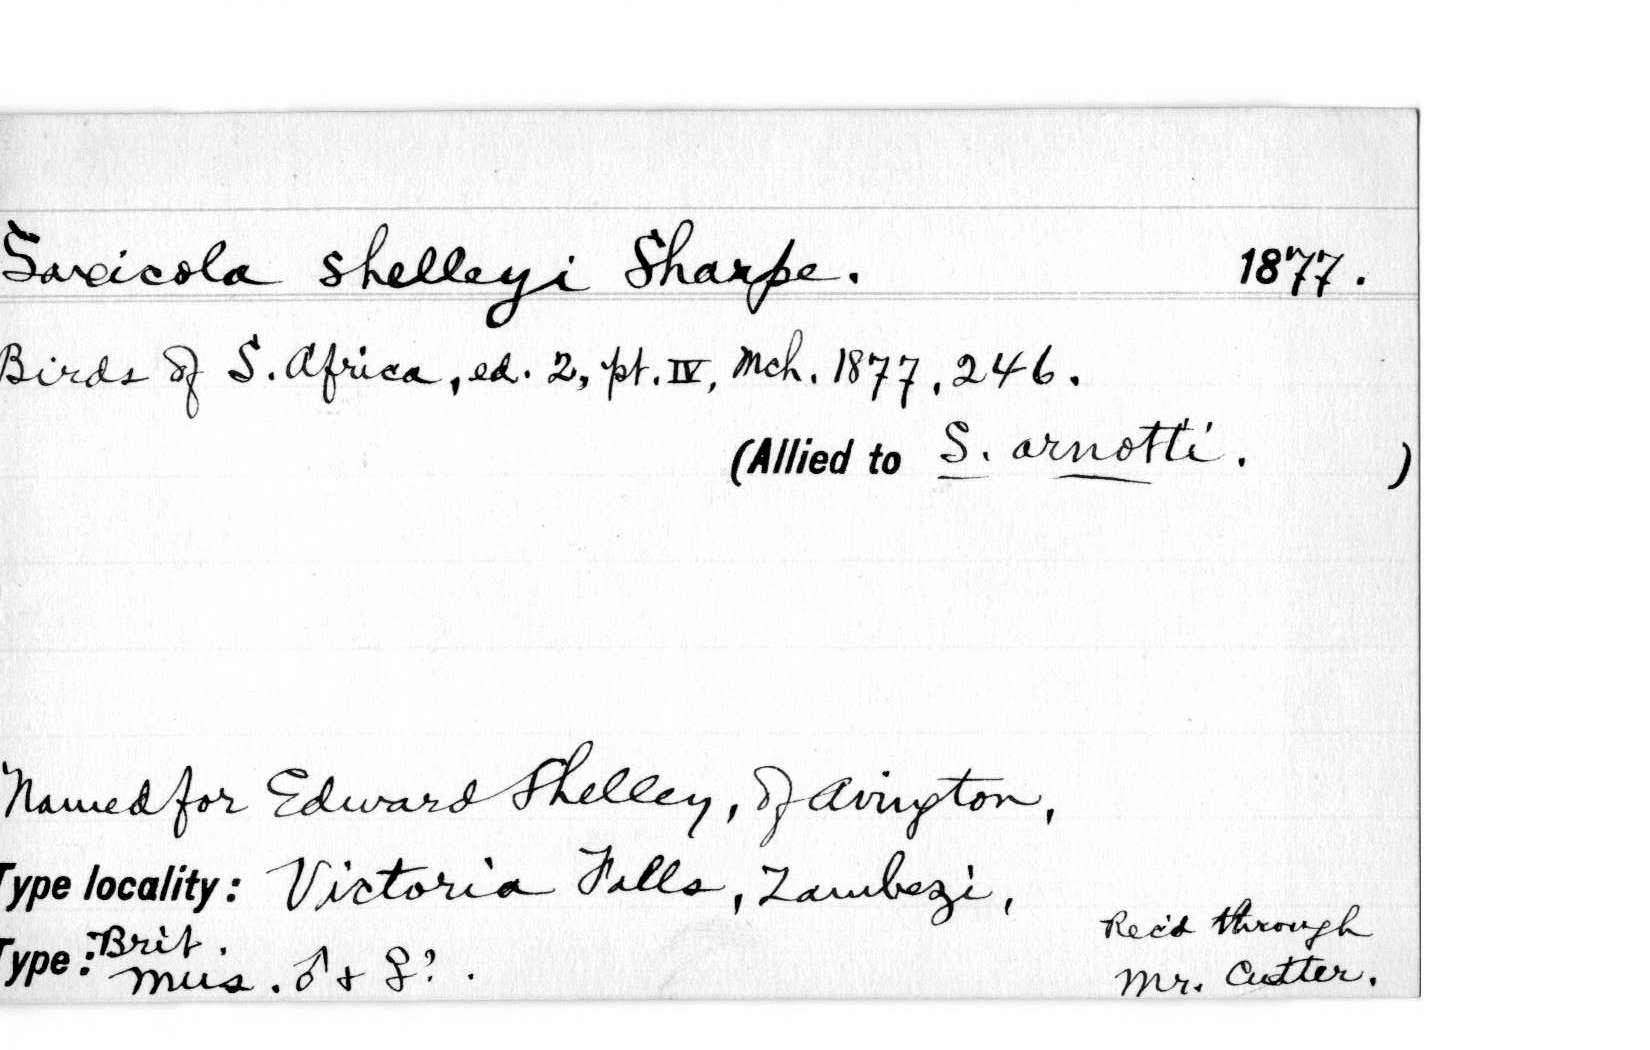 Saxicola shelleyi Sharpe. 1877.
Birds of S. Africa, ed. 2, pt. IV, Mch. 1877, 246.
(Allied to S. arnotti. )
Named for Edward Shelley, of Avington,
Type locality: Victoria Falls, Zambezi,
Type: Brit. Mus. ♂ + ♀? .
Rec'd through
Mr. Cutter.